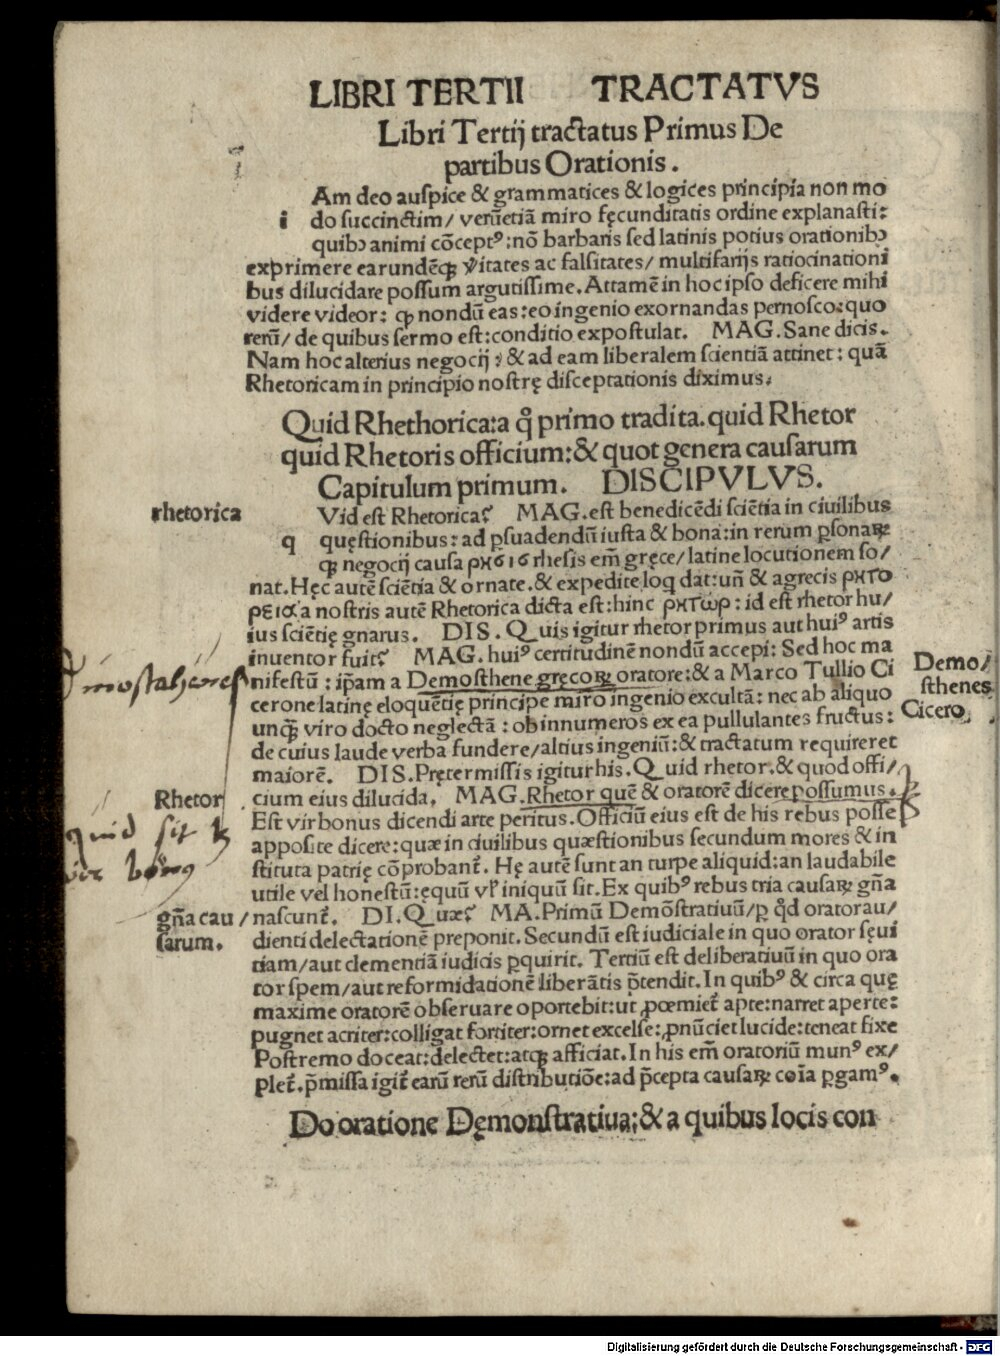 LIBRI TERTII TRACTATVS
Libri Tertij tractatus Primus De
partibus Orationis.
Am deo auspice & grammatices & logices principia non mo
i do succinctim/ verūetiā miro fęcunditatis ordine explanasti:
quibꝯ animi cōceptꝰ: nō barbaris sed latinis potius orationibꝯ
exprimere earundēqꝫ v̓itates ac falsitates/ multifarijs ratiocinationi
bus dilucidare possum argutissime. Attamē in hoc ipso deficere mihi
videre videor: ꝙ nondū eas: eo ingenio exornandas pernosco: quo
rerū/ de quibus sermo est: conditio expostulat. MAG. Sane dicis.
Nam hoc alterius negocij : & ad eam liberalem scientiā attinet: quā
Rhetoricam in principio nostrę disceptationis diximus.
Quid Rhethorica: a q̊ primo tradita. quid Rhetor
quid Rhetoris officium: & quot genera causarum
Capitulum primum. DISCIPVLVS.
rhetorica
Vid est Rhetorica? MAG. est benedicēdi sciētia in ciuilibus
q quęstionibus: ad ꝑsuadendū iusta & bona: in rerum ꝑsonaꝝ
qꝫ negocij causa ρχ616 rhesis em̄ gręce/ latine locutionem so/
nat. Hęc autē sciētia & ornate. & expedite loq̄ dat: un̄ & agrecis ρχτο
ρεια a nostris autē Rhetorica dicta est: hinc ρχτωρ: id est rhetor hu/
ius sciētię gnarus. DIS. Quis igitur rhetor primus aut huiꝰ artis
inuentor fuit? MAG. huiꝰ certitudinē nondū accepi: Sed hoc ma
nifestū : ip̄am a Demosthene gręcoꝝ oratore: & a Marco Tullio Ci
cerone latinę eloquētię principe miro ingenio excultā: nec ab aliquo
unqꝫ viro docto neglectā : ob innumeros ex ea pullulantes fructus:
de cuius laude verba fundere/ altius ingeniū: & tractatum requireret
Demo/
sthenes
Cicero
maiorē. DIS. Prętermissis igitur his. Quid rhetor. & quod offi/
Rhetor
cium eius dilucida. MAG. Rhetor quē & oratorē dicere possumus.
Est vir bonus dicendi arte peritus. Officiū eius est de his rebus posse
quid sit
apposite dicere: quæ in ciuilibus quæstionibus secundum mores & in
stituta patrię cōprobant᷑. Hę autē sunt an turpe aliquid: an laudabile
utile vel honestū: ęquū vl̓ iniquū sit. Ex quibꝰ rebus tria causaꝝ gn̄a
gn̄a cau/
sarum.
nascunt᷑. DI. Quæ? MA. Primū Demōstratiuū/ ꝑ q̊d orator au/
dienti delectationē preponit. Secundū est iudiciale in quo orator sęui
tiam/ aut clementiā iudicis ꝑquirit. Tertiū est deliberatiuū in quo ora
tor spem/ aut reformidationē liberātis p̄tendit. In quibꝰ & circa quę
maxime oratorē obseruare oportebit: ut ꝓœmiet᷑ apte: narret aperte:
pugnet acriter: colligat fortiter: ornet excelse: ꝓnūciet lucide: teneat fixe
Postremo doceat: delectet: atqꝫ afficiat. In his em̄ oratoriū munꝰ ex/
plet᷑. p̄missa igit᷑ earū rerū distributiōe: ad p̄cepta causaꝝ coīa ꝑgamꝰ.
Do oratione Dęmonstratiua: & a quibus locis con
Digitalisierung gefördert durch die Deutsche Forschungsgemeinschaft - DFG